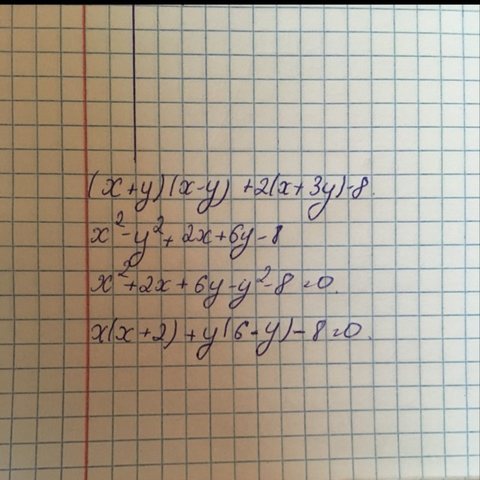 (x+y)(x-y)+2(x+3y)-8.
x²-y²+2x+6y-8
x²+2x+6y-y²-8=0.
x(x+2)+y(6-y)-8=0.